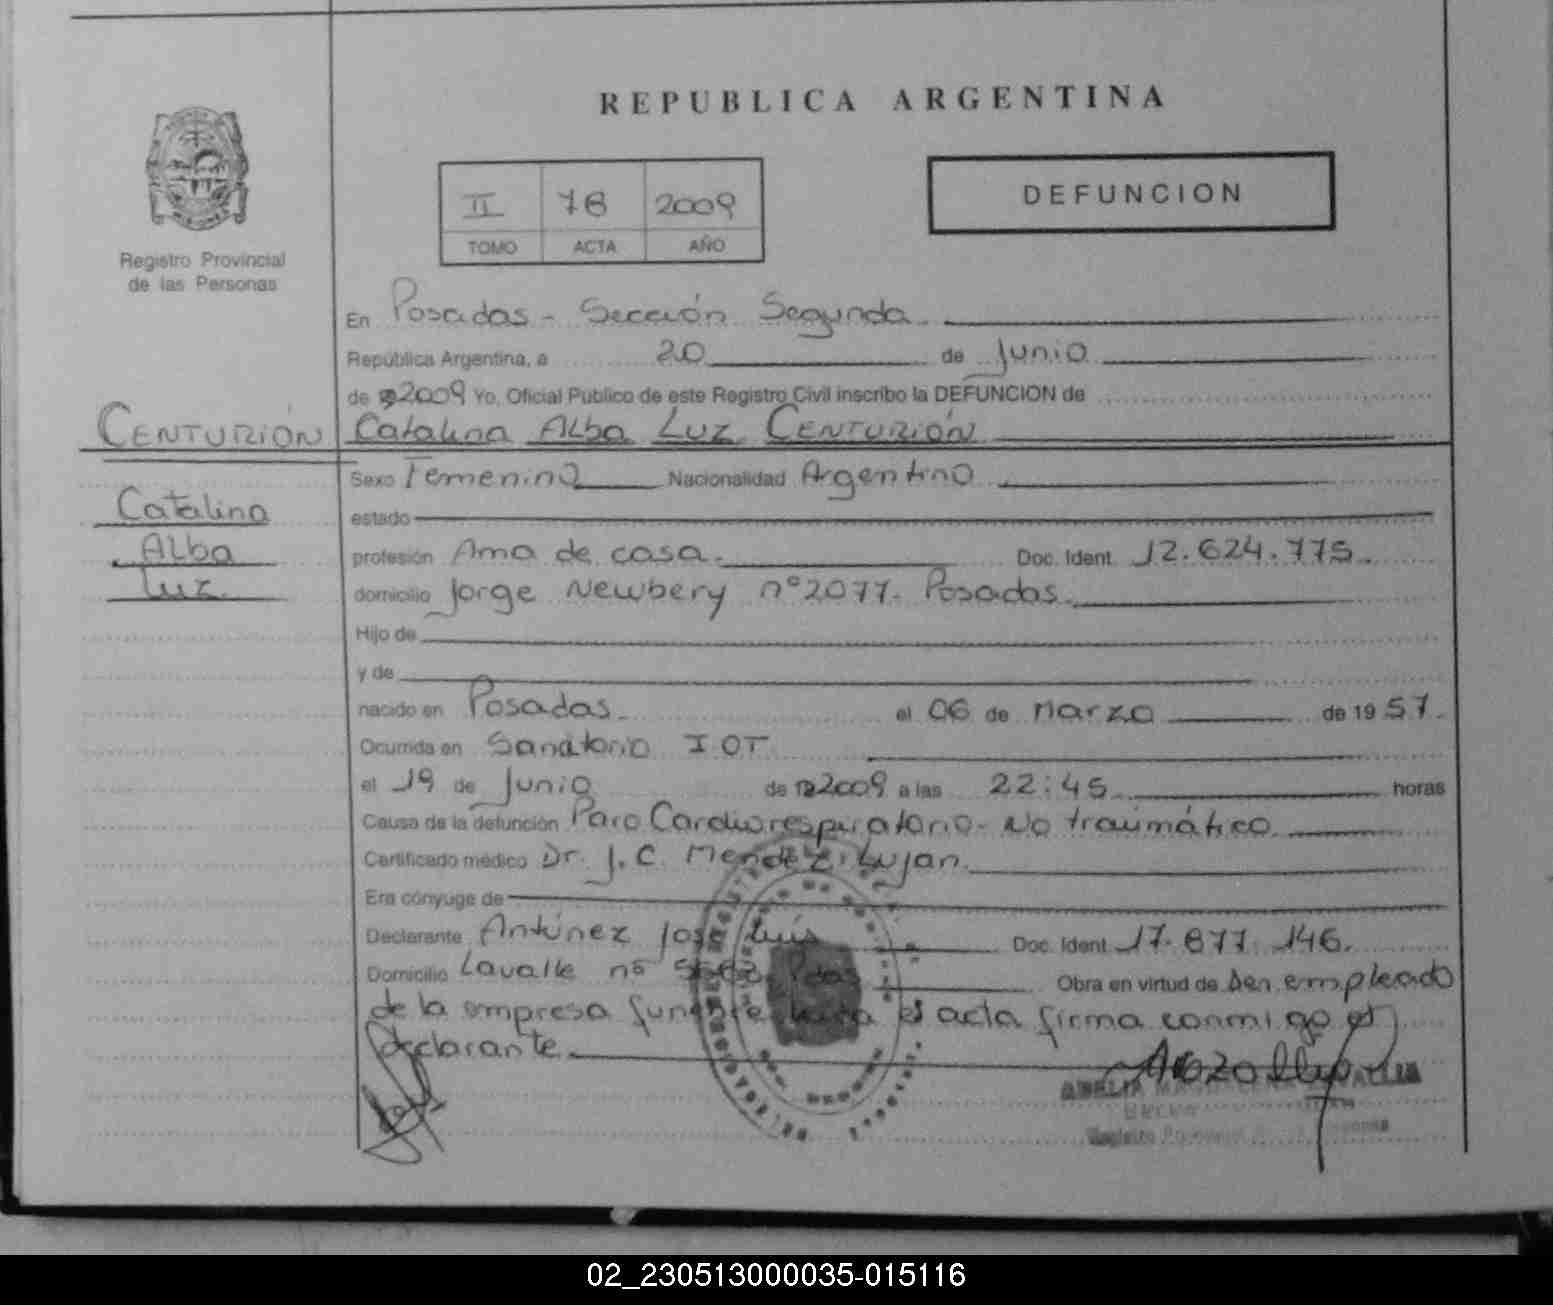 REPUBLICA ARGENTINA
II 78 2009
TOMO ACTA AÑO
DEFUNCION
Registro Provincial
de las Personas
En Posadas - Sección Segunda
República Argentina, a 20 de Junio
de 2009 Yo, Oficial Público de este Registro Civil inscribo la DEFUNCION de
CENTURIÓN
Catalina Alba Luz CENTURIÓN
Catalina
Alba
Luz
Sexo Femenino Nacionalidad Argentina
estado
profesión Ama de casa. Doc. Ident. 12.624.775.
domicilio Jorge Newbery nº 2077. Posadas.
Hijo de
y de
nacido en Posadas. el 06 de Marzo de 1957.
Ocurrida en Sanatorio I.OT
el 19 de Junio de 2009 a las 22:45 horas
Causa de la defunción Paro Cardiorespiratorio - No traumático
Certificado médico Dr. J. C. Mendez Lujan.
Era cónyuge de
Declarante Antúnez José Luis Doc. Ident. 17.877.146.
Domicilio Lavalle nº Pdas Obra en virtud de ser empleado
de la empresa acta firma conmigo el
declarante.
Registro
02_230513000035-015116